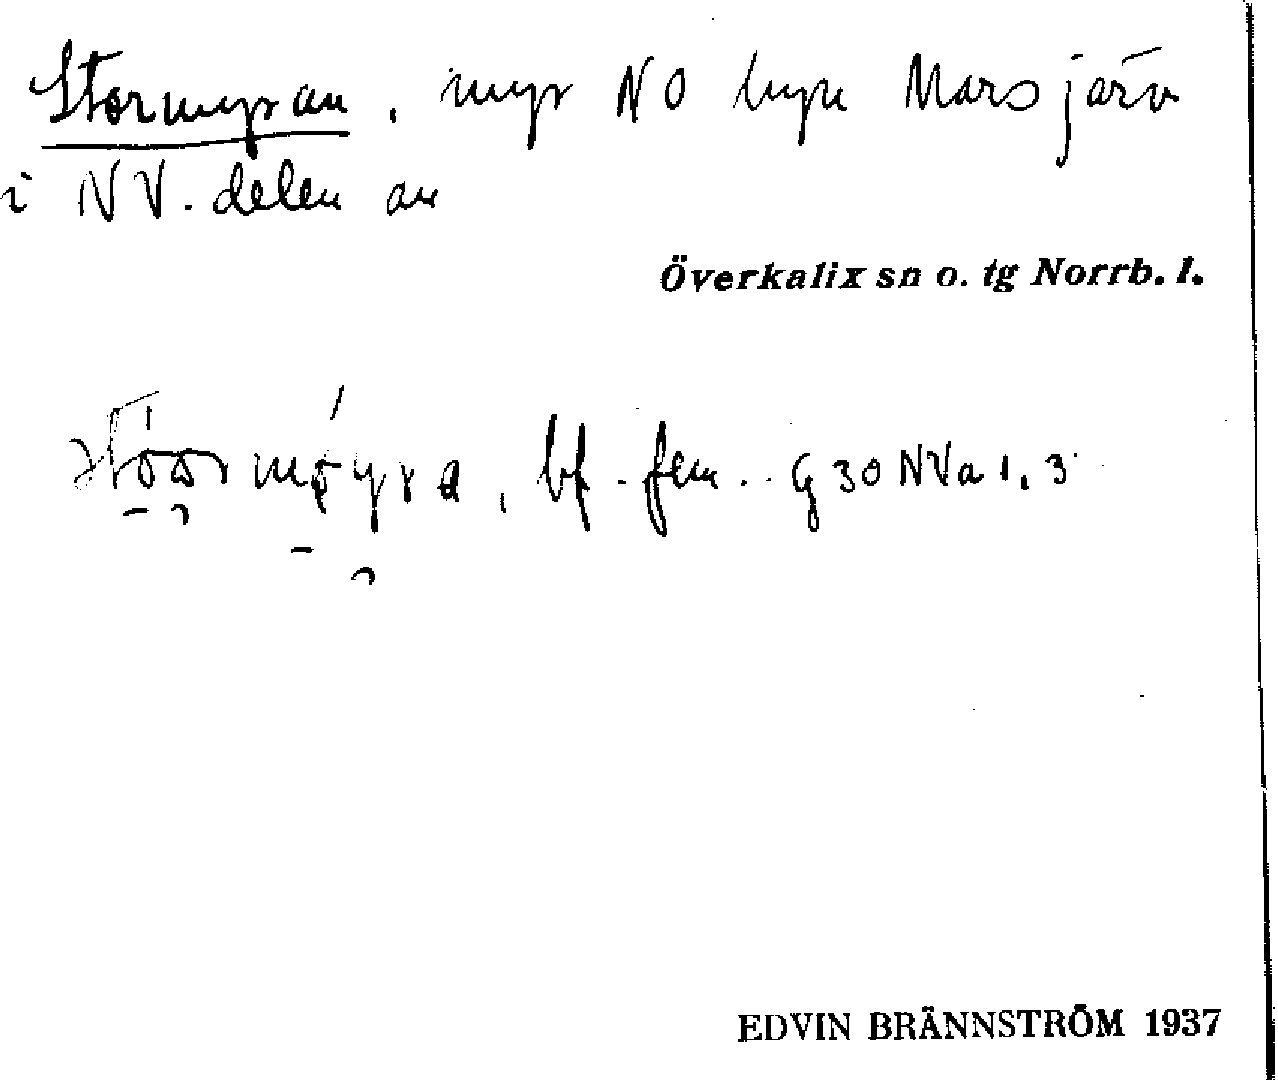 Stormyran, myr NO byn Marsjärv
i NV. delen av
Överkalix sn o. tg Norrb. l.
bf. fem. G 30 NVa 1, 3
EDVIN BRÄNNSTRÖM 1937